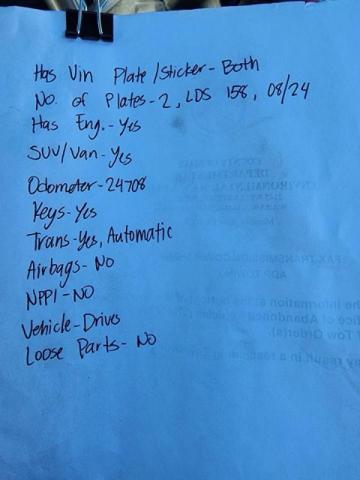 Has Vin Plate/Sticker - Both
No. of Plates - 2, LDS 158, 08/24
Has Eng. - Yes
SUV/Van - Yes
Odometer - 24708
Keys - Yes
Trans - Yes, Automatic
Airbags - No
NPPI - NO
Vehicle - Drives
Loose Parts - No